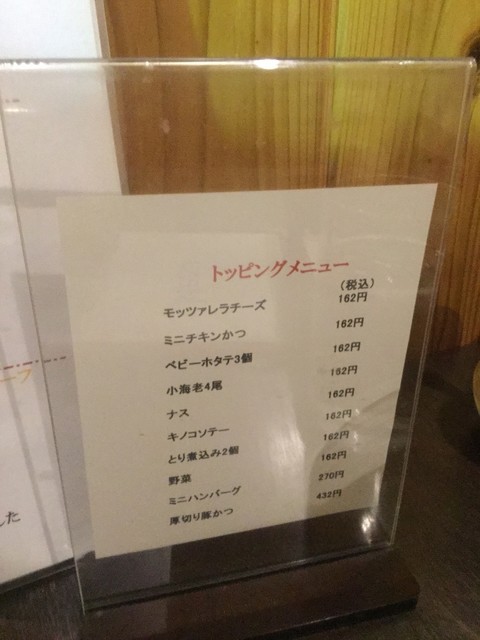 トッピングメニュー
(税込)
モッツァレラチーズ 162円
ミニチキンかつ 162円
ベビーホタテ3個 162円
小海老4尾 162円
ナス 162円
キノコソテー 162円
とり煮込み2個 162円
野菜 162円
ミニハンバーグ 270円
厚切り豚かつ 432円
ーフ
した